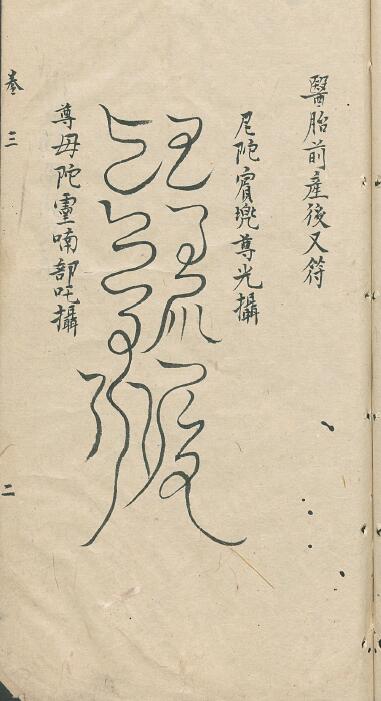 醫胎前產後又符
尼陀賓兜尊光攝
尊毋陀靈喃部吒攝
卷三
二